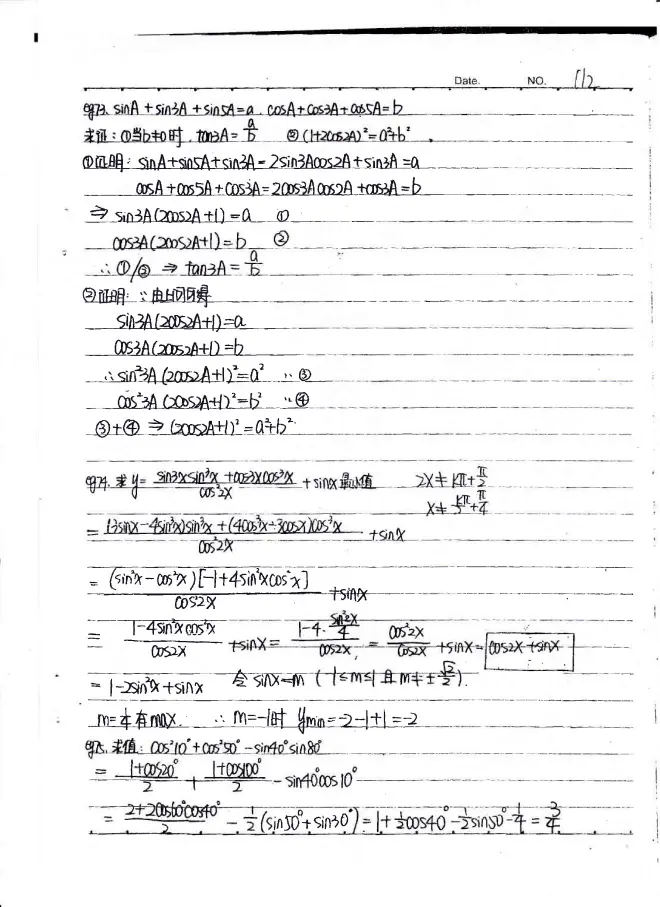 Date. NO. 112
eg73. sinA + sin3A + sin5A = a . cosA + cos3A + cos5A = b
求证: ①当b≠0时, tan3A = a/b ②(1+2cos2A)² = a²+b² .
①证明: sinA+sin5A+sin3A = 2sin3Acos2A+sin3A = a
cosA+cos5A+cos3A = 2cos3Acos2A+cos3A = b
⇒ sin3A(2cos2A+1) = a ①
cos3A(2cos2A+1) = b ②
∴ ①/② ⇒ tan3A = a/b
②证明: ∵由上问可得
sin3A(2cos2A+1) = a
cos3A(2cos2A+1) = b
∴ sin²3A (2cos2A+1)² = a² ∵ ③
cos²3A (2cos2A+1)² = b² ∵ ④
③+④ ⇒ (2cos2A+1)² = a²+b²
eg74. 求 y = (sin3xsin³x + cos3xcos³x)/cos²2x + sinx 最小值 2x ≠ kπ + π/2
x ≠ kπ/2 + π/4
= ((3sinx-4sin³x)sin³x + (4cos³x-3cosx)cos³x)/cos²2x + sinx
= (sin²x-cos²x)[-1+4sin²xcos²x]/cos²2x + sinx
= (1-4sin²xcos²x)/cos2x + sinx = (1-4·sin²2x/4)/cos2x = cos²2x/cos2x + sinx = cos2x+sinx
= 1-2sin²x+sinx 令 sinx=m (-1≤m≤1 且 m≠±√2/2).
m=1/4有max. ∴ m=-1时 ymin = -2-1+1 = -2
eg75. 求值: cos²10°+cos²50°-sin40°sin80°
= (1+cos20°)/2 + (1+cos100°)/2 - sin40°cos10°
= (2+2cos60°cos40°)/2 - 1/2(sin50°+sin30°) = 1+1/2cos40°-1/2sin50°-1/4 = 3/4